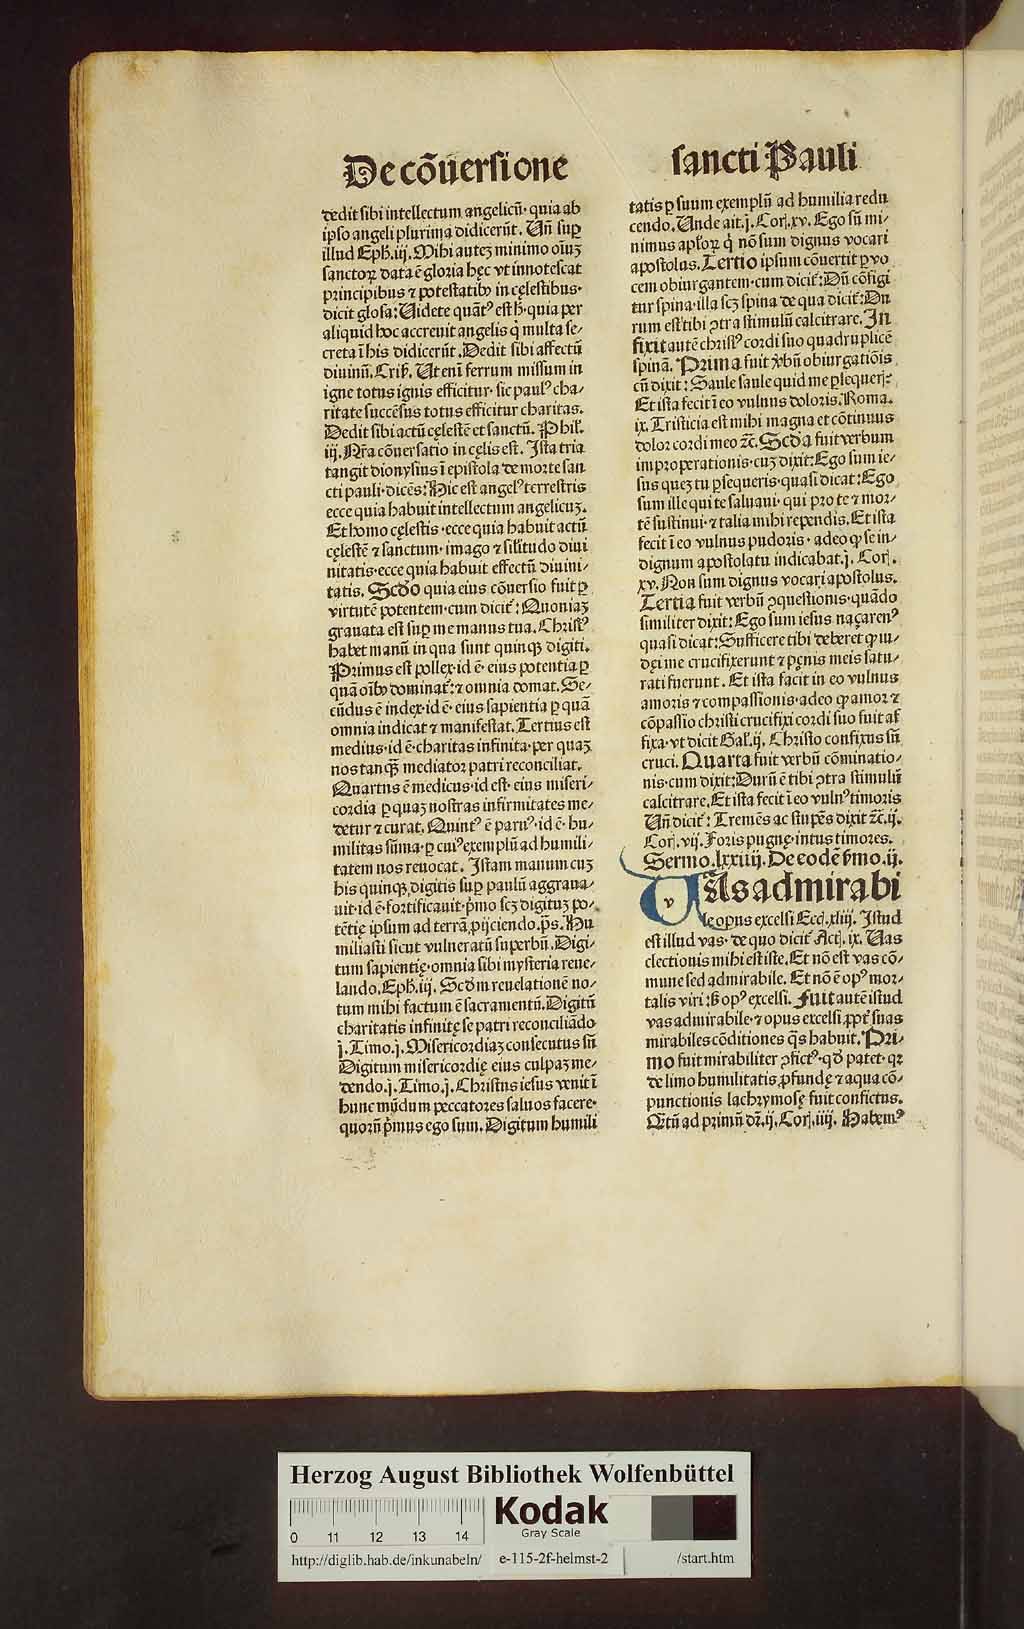 De cōuersione
dedit sibi intellectum angelicū· quia ab
ipso angeli plurima didicerūt. Vn̄ sup̱
illud Eph̄.iij. Mihi autez minimo oīuꝫ
sanctoꝝ data ē gloria hęc vt innotescat
principibus ⁊ potestatibꝰ in cęlestibus·
dicit glosa: Uidete quātꝰ est h̄· quia per
aliquid hoc accreuit angelis q̇ multa se⸗
creta ī his didicerūt. Dedit sibi affectū
diuinū. Criſ̄. Ut enī ferrum missum in
igne totus ignis efficitur· sic paulꝰ cha⸗
ritate succēsus totus efficitur charitas.
Dedit sibi actū cęlestē et sanctū. Phil̄.
iij. Nr̄a cōuersatio in cęlis est. Ista tria
tangit dionysius ī epistola de morte san
cti pauli· dicēs: Hic est angelꝰ terrestris
ecce quia habuit intellectum angelicuꝫ.
Et homo cęlestis· ecce quia habuit actū
cęlestē ⁊ sanctum· imago ⁊ sil̄itudo diui
nitatis· ecce quia habuit effectū diuini⸗
tatis. Scd̄o quia eius cōuersio fuit ꝑ
virtutē potentem· cum dicit᷑: Quoniaꝫ
grauata est sup̱ me manus tua. Christꝰ
habet manū in qua sunt quinqꝫ digiti.
Primus est pollex· id ē· eius potentia ꝑ
quā oīb' dominat᷑: ⁊ omnia domat. Se⸗
cūdus ē index· id ē· eius sapientia ꝑ quā
omnia indicat ⁊ manifestat. Tertius est
medius· id ē· charitas infinita· per quaꝫ
nos tanqꝫ̄ mediator patri reconciliat.
Quartus ē medicus· id est· eius miseri⸗
cordia ꝑ quaꝫ nostras infirmitates me⸗
detur ⁊ curat. Quintꝰ ē paruꝰ· id ē· hu⸗
militas sūma· ꝑ cuiꝰ exemplū ad humili⸗
tatem nos reuocat. Istam manum cuꝫ
his quinqꝫ digitis sup̱ paulū aggraua⸗
uit· id ē· fortificauit· p̄mo scꝫ digituꝫ po⸗
tētię ipsum ad terrā ꝓijciendo. p̄s. Hu
miliasti sicut vulneratū superbū. Digi⸗
tum sapientię· omnia sibi mysteria reue⸗
lando. Eph̄.iij. Scd̄m reuelationē no⸗
tum mihi factum ē sacramentū. Digitū
charitatis infinitę se patri reconciliādo
j. Timo.j. Misericordiaꝫ consecutus sū
Digitum misericordię eius culpaꝫ me⸗
dendo.j. Timo.j. Christus iesus venit ī
hunc mūdum peccatores saluos facere·
quorū p̄mus ego sum. Digitum humili
sancti Pauli
tatis ꝑ suum exemplū ad humilia redu
cendo. Unde ait.j. Corj.xv. Ego sū mi⸗
nimus apl̄oꝝ q̇ nō sum dignus vocari
apostolus. Tertio ipsum cōuertit ꝑ vo
cem obiurgantem· cum dicit᷑: Dū cōfigi
tur spina· illa scꝫ spina de qua dicit᷑: Du
rum est tibi ꝯtra stimulū calcitrare. In
fixit autē christꝰ cordi suo quadruplicē
spinā. Prima fuit v̓bū obiurgatiōis
cū dixit: Saule saule quid me ꝑsequerj?
Et ista fecit ī eo vulnus doloris. Roma.
ix. Tristicia est mihi magna et cōtinuus
dolor cordi meo ⁊c̄. Scd̄a fuit verbum
improperationis· cuꝫ dixit: Ego sum ie⸗
sus quez tu ꝑsequeris· quasi dicat: Ego
sum ille qui te saluaui· qui pro te ⁊ mor⸗
tē sustinui· ⁊ talia mihi rependis. Et ista
fecit ī eo vulnus pudoris· adeo ꝙ se in⸗
dignum apostolatu indicabat.j. Corj.
xv. Non sum dignus vocari apostolus.
Tertia fuit verbū ꝯquestionis· quādo
similiter dixit: Ego sum iesus naçarenꝰ
quasi dicat: Sufficere tibi deberet ꝙ iu⸗
dęi me crucifixerunt ⁊ pęnis meis satu⸗
rati fuerunt. Et ista facit in eo vulnus
amoris ⁊ compassionis· adeo ꝙ amor ⁊
cōpassio christi crucifixi cordi suo fuit af
fixa· vt dicit Gal̄.ij. Christo confixus sū
cruci. Quarta fuit verbū cōminatio⸗
nis· cum dixit: Durū ē tibi ꝯtra stimulū
calcitrare. Et ista fecit ī eo vulnꝰ timoris
Un̄ dicit᷑: Tremēs ac stupēs dixit ⁊c̄.ij.
Corj.vij. Foris pugnę· intus timores.
Sermo.lxxiiij. De eodē s̄mo.ij.
v
Uas admirabi
le opus excelsi Eccj.xliij. Istud
est illud vas· de quo dicit᷑ Actj.ix. Uas
electionis mihi est iste. Et nō est vas cō⸗
mune sed admirabile. Et nō ē opꝰ mor⸗
talis viri: s̄ opꝰ excelsi. Fuit autē istud
vas admirabile· ⁊ opus excelsi ꝓpt᷑ suas
mirabiles cōditiones q̄s habuit. Pri⸗
mo fuit mirabiliter ꝯfictꝰ· qd̄ patet· qꝛ
de limo humilitatis ꝓfundę ⁊ aqua cō⸗
punctionis lachrymosę fuit confictus.
Q̄tū ad primū dꝛ̄.ij. Corj.iiij. Habemꝰ
Herzog August Bibliothek Wolfenbüttel
0 11 12 13 14
Kodak
Gray Scale
http://diglib.hab.de/inkunabeln/ e-115-2f-helmst-2 /start.htm